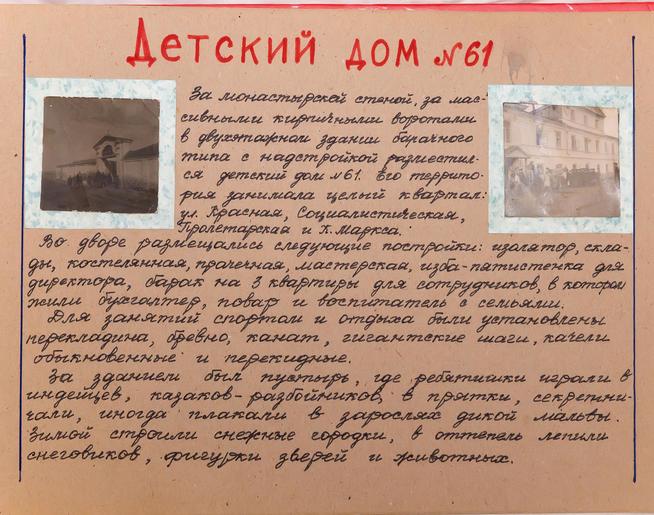 Детский дом №61
За монастырской стеной, за мас-
сивными кирпичными воротами
в двухэтажном здании барачного
типа с надстройкой разместил-
ся детский дом №61. Его террито-
рия занимала целый квартал:
ул. Красная, Социалистическая,
Пролетарская и К. Маркса.
Во дворе размещались следующие постройки: изолятор, скла-
ды, костелянная, прачечная, мастерская, изба-пятистенка для
директора, барак на 3 квартиры для сотрудников, в котором
жили бухгалтер, повар и воспитатель с семьями.
Для занятий спортом и отдыха были установлены
перекладина, бревно, канат, гигантские шаги, качели
обыкновенные и перекидные.
За зданием был пустырь, где ребятишки играли в
индейцев, казаков-разбойников, в прятки, секретни-
чали, иногда плакали в зарослях дикой мальвы.
Зимой строили снежные городки, в оттепель лепили
снеговиков, фигурки зверей и животных.